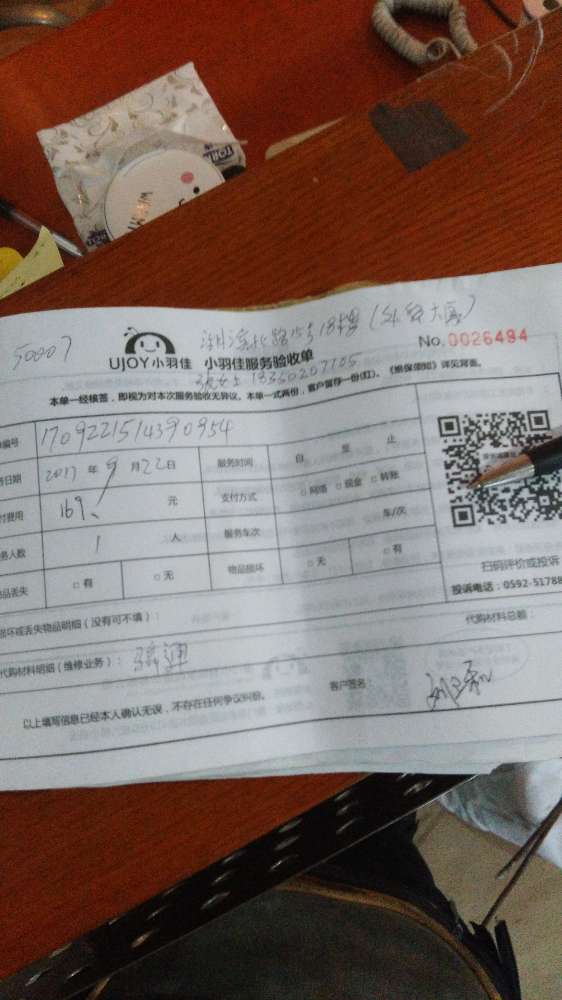 50007
湖滨北路15号18楼(外贸大厦)
UJOY小羽佳 小羽佳服务验收单
No.0026494
13360207105
本单一经核签,即视为对本次服务验收无异议。本单一式两份,客户留存一份(红)。《维保须知》详见背面。
编号 1709221514390954
日期 2017 年 9 月 22 日 服务时间 自 至 止
付费用 169、 元 支付方式 □ 网络 □ 现金 □ 转账
务人数 1 人 服务车次 车/次
品丢失 □ 有 □ 无 物品损坏 □ 无 □ 有
扫码评价或投诉
投诉电话:0592-51788
损坏或丢失物品明细(没有可不填):
代购材料总额:
代购材料明细(维修业务):疏通
客户签名:
以上填写信息已经本人确认无误,不存在任何争议纠纷。